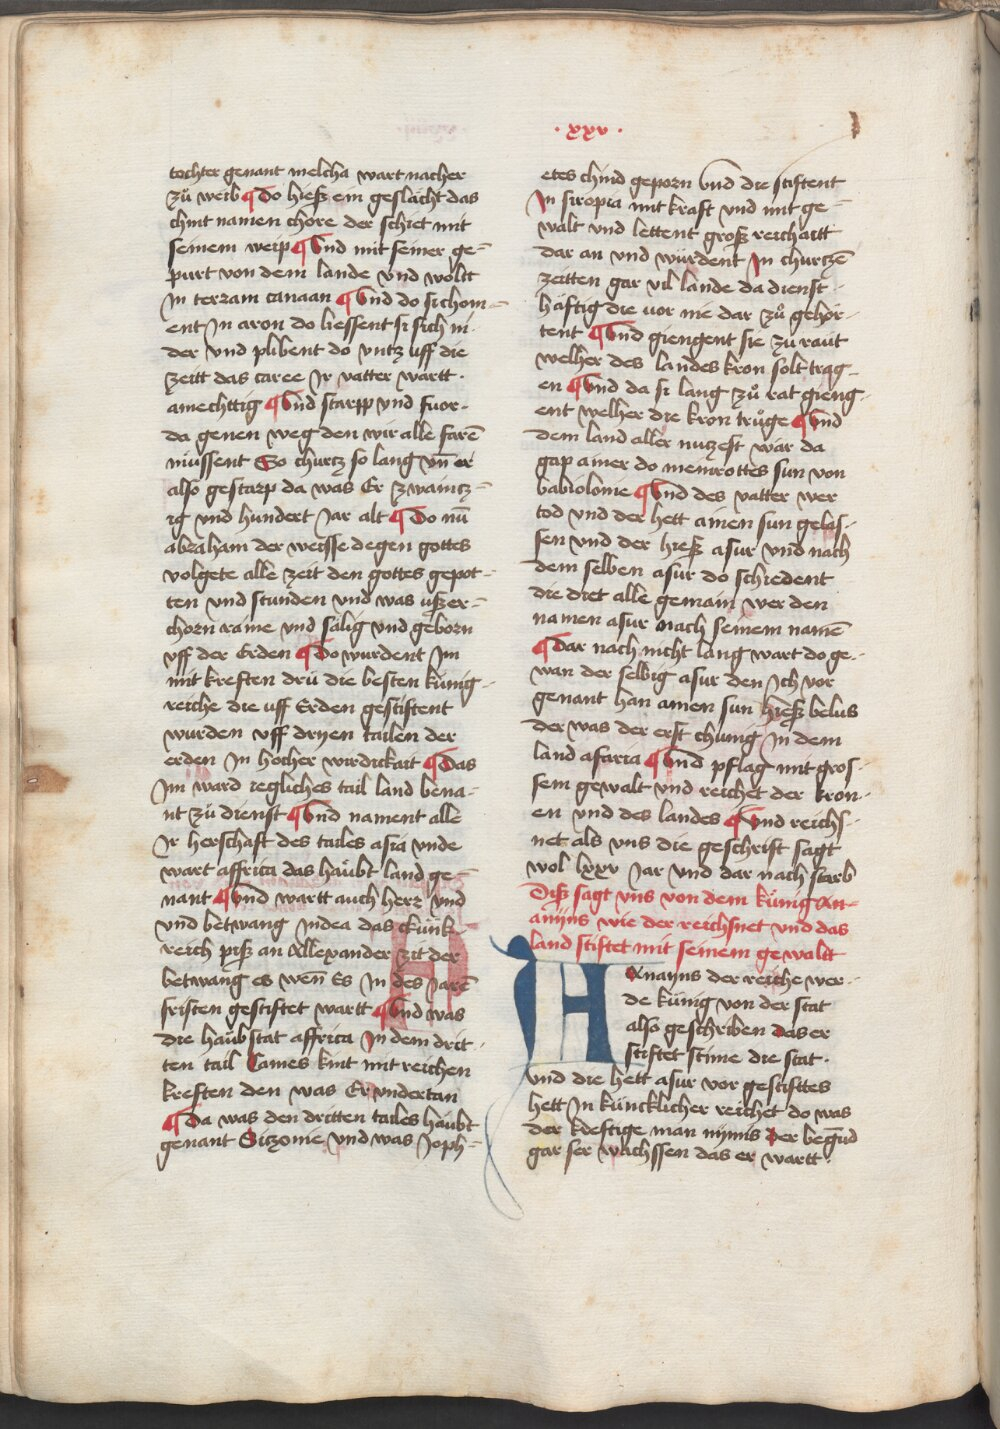 · xxv ·
tochter genant melcha wart nacher
zů weib ¶ Do hieß ein geslächt das
chint namen chore der schiet mit
seinem weip ¶ Vnd mit seiner ge-
purt von dem lande vnd woltt
In terram canaan ¶ Vnd do si chom-
ent In aron do liessent si sich ni-
der vnd plibent do vntz vff die
zeitt das caree Ir vatter wartt·
amechttig ¶ Vnd starpp vnd fuor·
da genen weg den wir alle farē
müssent So churtz so lang vn̄ er
also gestarp da was Er zwaintz-
ig vnd hundert Jar alt ¶ Do nū
abraham der weisse degen gottes
volgete alle zeit den gottes gepot-
ten vnd stunden vnd was ußer-
chorn raine vnd sälig vnd geborn
vff der Erden ¶ Do wurdent Im
mit kreften drü die besten künig-
reiche die uff Erden gestiftent
wurden vff dryen tailen der
erden In hocher wirdickait ¶ Das
Im ward iegliches tail land bena-
nt zů dienst ¶ Vnd nament alle
Ir herschaft des tailes asia vnde
wart affrica das häubt land ge-
nant ¶ Vnd wartt auch herz vnd
vnd betwang Indea das ckünk-
reich piß an Allexander zit der
betwang es wen̄ Es In des Jarē
fristen gestiftet wartt ¶ Vnd was
die haübstat affrica In dem drit-
ten tail Cames kint mit reichen
kreften den was Er vndertan
¶ Da was den dritten tailes häubt
genant Sitzonie vnd was Joph-
etes chind geporn vnd die stiftent
In siropia mit kraft vnd mit ge-
walt vnd lettent groß reichaitt
dar an vnd würdent In churtzē
zeitten gar vil lande da dienst-
häftig die vor nie dar zů gehör-
tent ¶ Vnd giengent sie zů raut
welher des landes kron solt trag-
en ¶ Vnd da si lang zů rat gieng-
ent welher die kron trüge ¶ Vnd
dem land aller nutzest wär da
gap ainer do memrottes sun von
babiolonie ¶ Vnd des vatter wer
tod vnd der hett ainen sun gelas-
sen vnd der hieß asur vnd nach
dem selben asur do schiedent
die diet alle gemain wer den
namen asur nach seinem namē
¶ Dar nach nicht lang wart do ge-
wan der selbig asur den Ich vor
genant han ainen sun hieß belus
der was der erst chünig In dem
land asaria ¶ Vnd pflag mit gros-
sem gewalt vnd reichet der kron-
en vnd des landes ¶ Vnd reichs-
net als vns die geschrift sagt
wol lxxv Jar vnd dar nach starb
Diß sagt vns von dem künig An-
anijns wie der reichsnet vnd das
land stiftet mit seinem gewaltt
Anayns der reiche wer-
de künig von der stat
also geschriben das er
stiftet seine die stat·
vnd die hett asur vor gestifttes
hett In küncklicher reichet do was
der kdeftige man nymis der begūd
gar ser wachssen das er wartt·